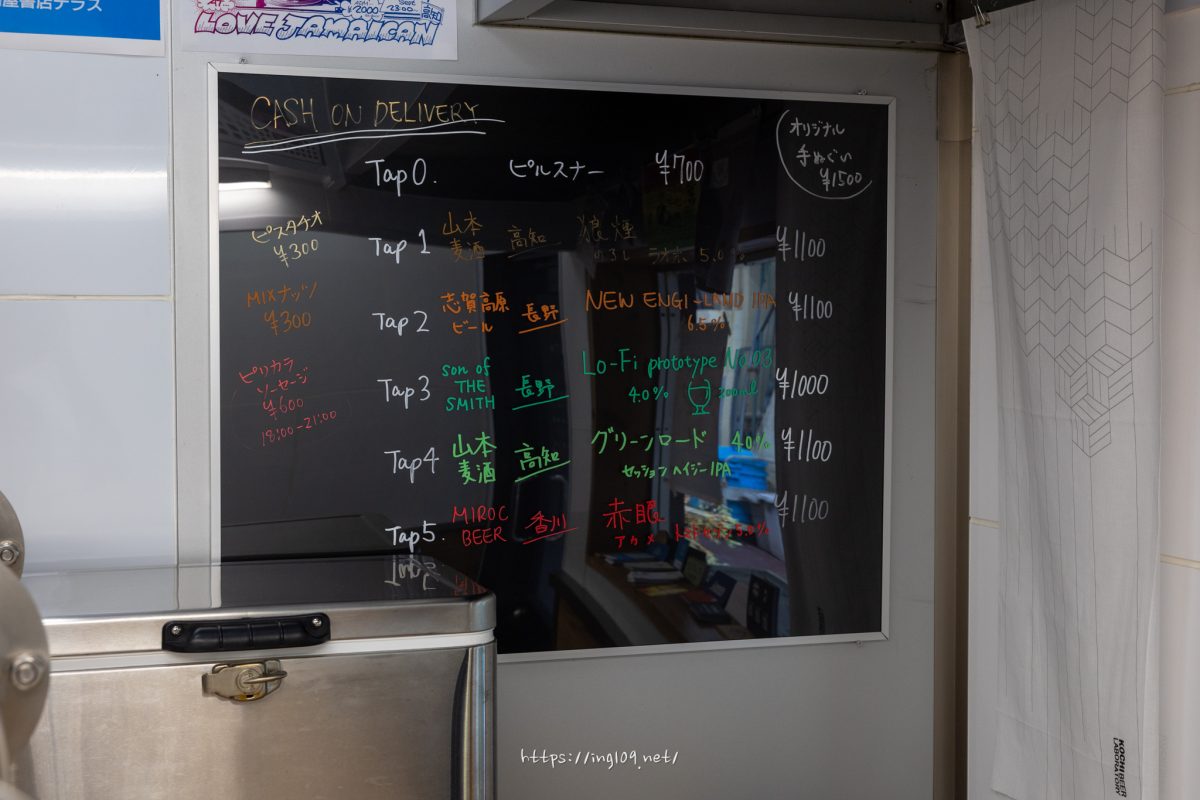 屋書店テラス
¥2000
2300
高知
LOVE JAMAICAN
CASH ON DELIVERY
オリジナル
手ぬぐい
¥1500
Tap 0. ピルスナー ¥700
ピスタチオ
¥300
Tap 1 山本麦酒 高知 狼煙 ¥1100
のろし ラオホ 5.0%
MIXナッツ
¥300
Tap 2 志賀高原ビール 長野 NEW ENGLAND IPA ¥1100
6.5%
ピリカラ
ソーセージ
¥600
18:00-21:00
Tap 3 son of THE SMITH 長野 Lo-Fi prototype No.03 ¥1000
4.0% 200ml
Tap 4 山本麦酒 高知 グリーンロード 4.0% ¥1100
セッション ヘイジーIPA
Tap 5. MIROC BEER 香川 赤眼 ¥1100
アカメ 5.0%
KOCHI BEER
LABORATORY
https://ing109.net/